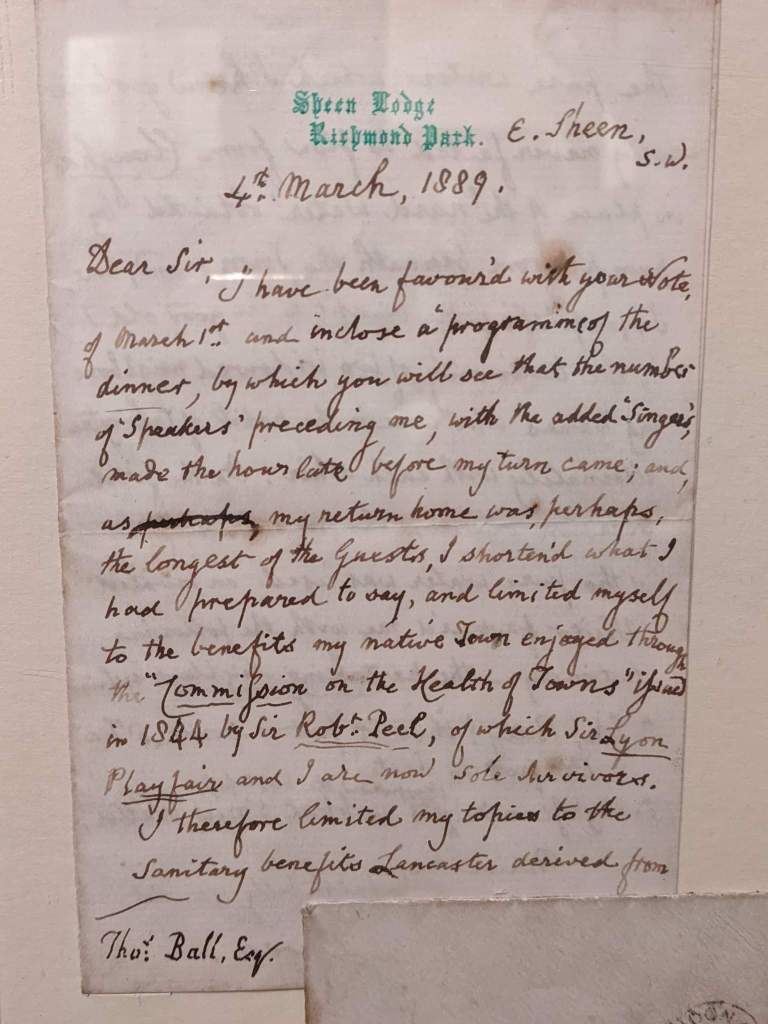 Sheen Lodge
Richmond Park. E. Sheen,
S.W.
4th. March, 1889.
Dear Sir,
I have been favour'd with your Note,
of March 1st. and inclose a "programme of the
dinner, by which you will see that the number
of 'Speakers' preceding me, with the added 'Singers',
made the hour late before my turn came; and,
as perhaps, my return home was, perhaps,
the longest of the Guests, I shorten'd what I
had prepared to say, and limited myself
to the benefits my native Town enjoyed through
the "Commission on the Health of Towns" issued
in 1844 by Sir Robt. Peel, of which Sir Lyon
Playfair and I are now sole survivors.
I therefore limited my topics to the
Sanitary benefits Lancaster derived from
Thos. Ball, Esq.